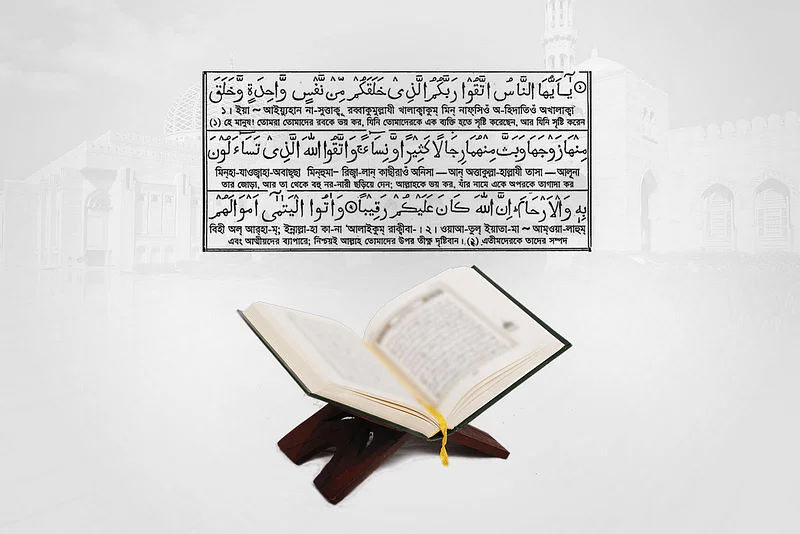 يٰۤاَيُّهَا النَّاسُ اتَّقُوْا رَبَّكُمُ الَّذِىْ خَلَقَكُمْ مِّنْ نَّفْسٍ وَّاحِدَةٍ وَّخَلَقَ
১। ইয়া ~ আইয়্যুহান না-সুত্তাকূ রব্বাকুমুল্লাযী খালাক্বাকুম্ মিন্ নাফ্সিওঁ অ-হিদাতিওঁ অখালাক্বা
(১) হে মানুষ! তোমরা তোমাদের রবকে ভয় কর, যিনি তোমাদেরকে এক ব্যক্তি হতে সৃষ্টি করেছেন, আর যিনি সৃষ্টি করেন
مِنْهَا زَوْجَهَا وَبَثَّ مِنْهُمَا رِجَالًا كَثِيْرًا وَّنِسَآءً ۚ وَاتَّقُوا اللّٰهَ الَّذِىْ تَسَآءَلُوْنَ
মিন্হা-যাওজ্বাহা-অবাছ্ছা মিন্হুমা– রিজ্বা-লান্ কাছীরাওঁ অনিসা — আন্ অত্তাকুল্লা-হাল্লাযী তাসা — আলূনা
তার জোড়া, আর তা থেকে বহু নর-নারী ছড়িয়ে দেন; আল্লাহকে ভয় কর, যাঁর নামে একে অপরকে তাগাদা কর
بِهٖ وَالْاَرْحَامَ ؕ اِنَّ اللّٰهَ كَانَ عَلَيْكُمْ رَقِيْبًا وَاٰتُوا الْيَتٰمٰٓى اَمْوَالَهُمْ
বিহী অল্ আর্হা-ম্; ইন্নাল্লা-হা কা-না 'আলাইকুম্ রাক্বীবা-। ২। ওয়াআ-তুল্ ইয়াতা-মা ~ আম্ওয়া-লাহুম্
এবং আত্মীয়দের ব্যাপারে; নিশ্চয়ই আল্লাহ তোমাদের উপর তীক্ষ্ণ দৃষ্টিবান। (২) এতীমদেরকে তাদের সম্পদ